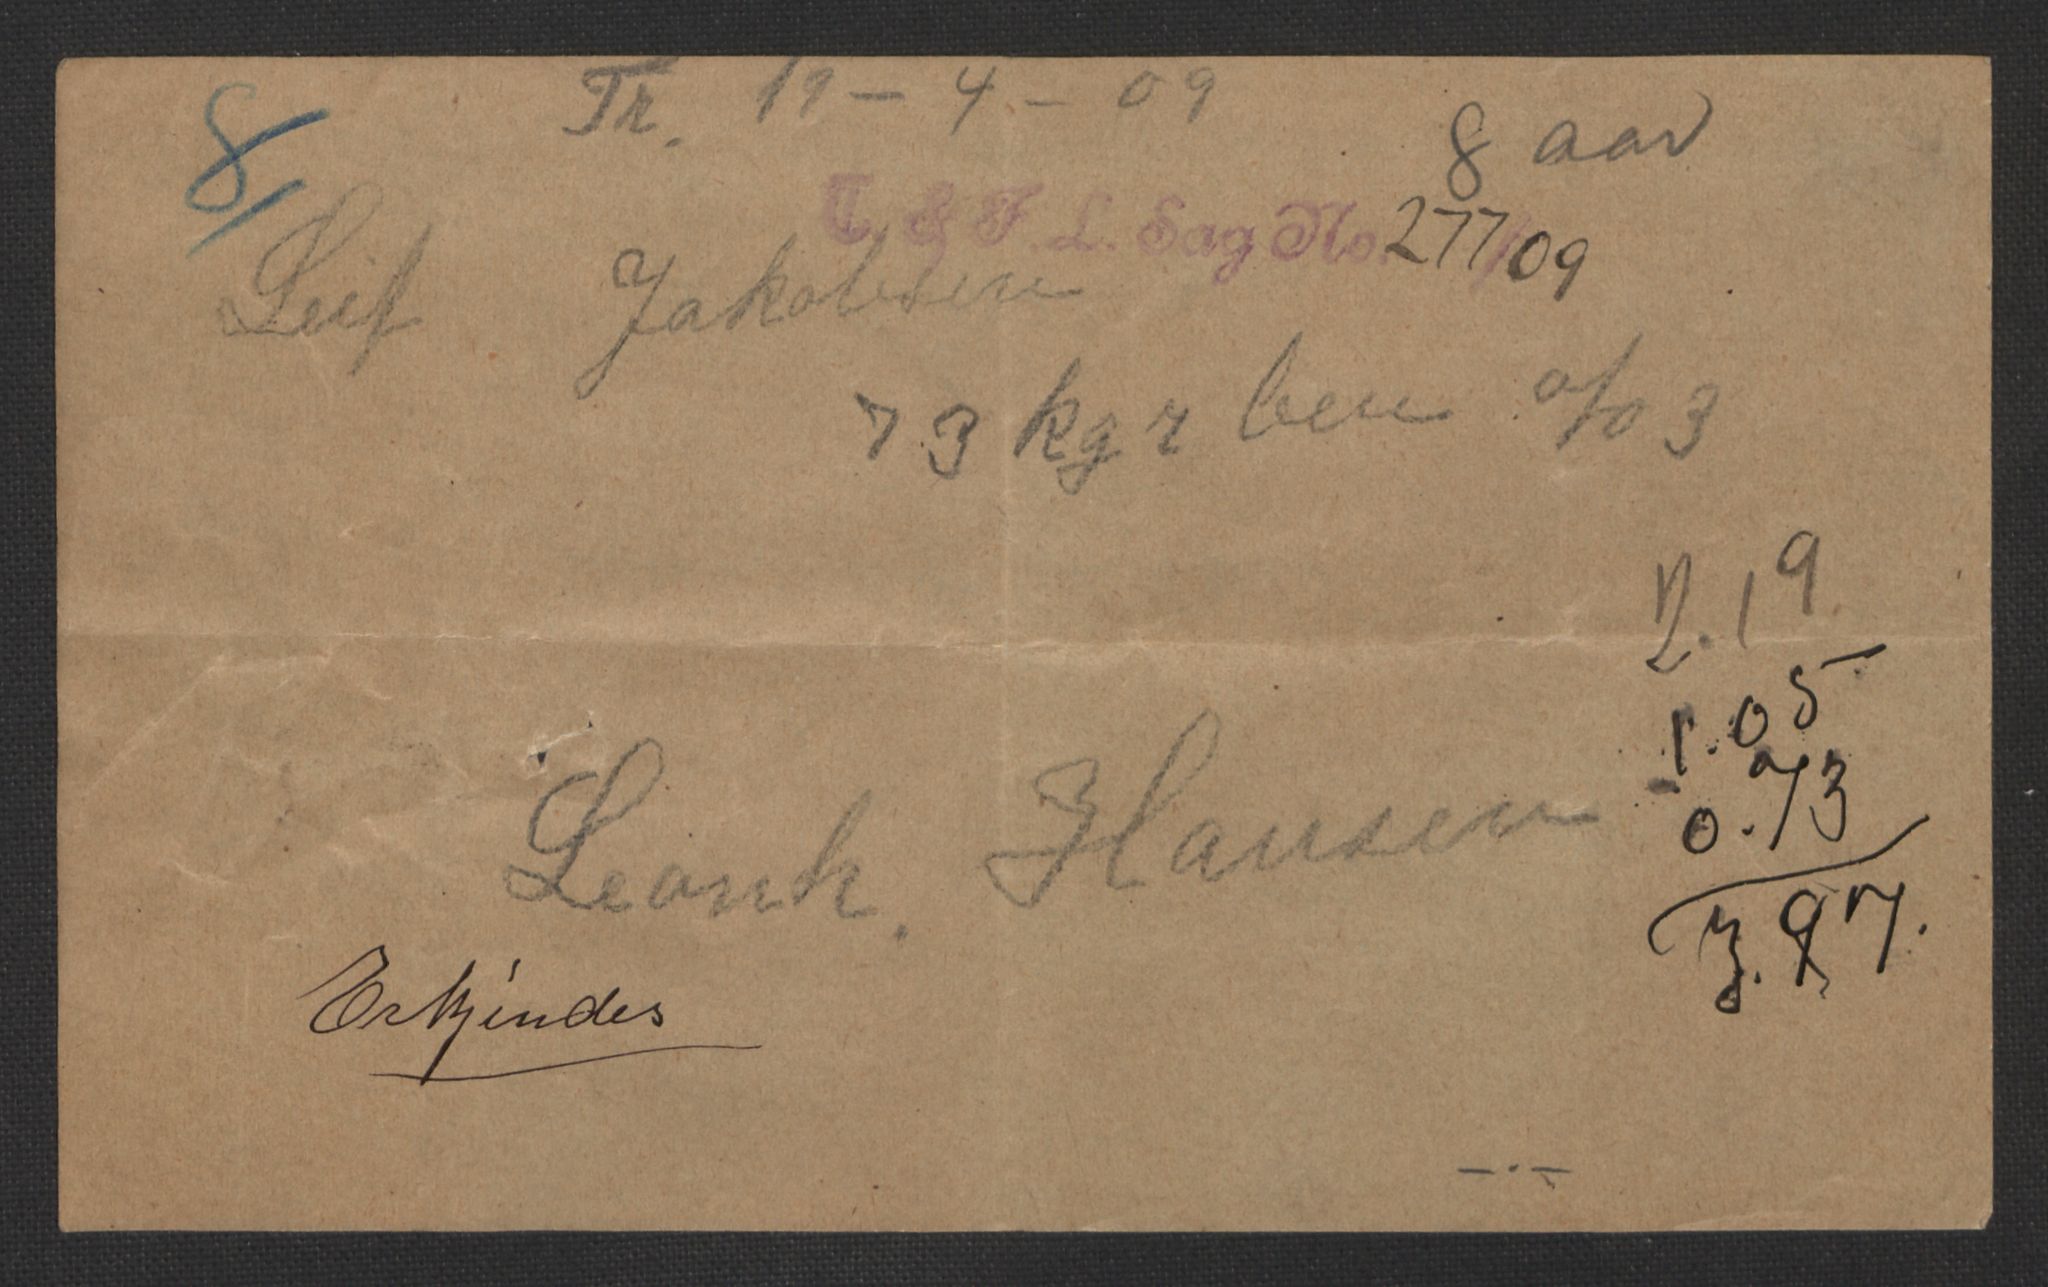 8/
Tr. 19 - 4 - 09
8 aar
T. & F. L. Sag No. 277/09
Leif Jakobsen
73 kgr ben a/o 3
2.19
1.05
0.73
3.97.
Leonh. Hansen
Erkjendes